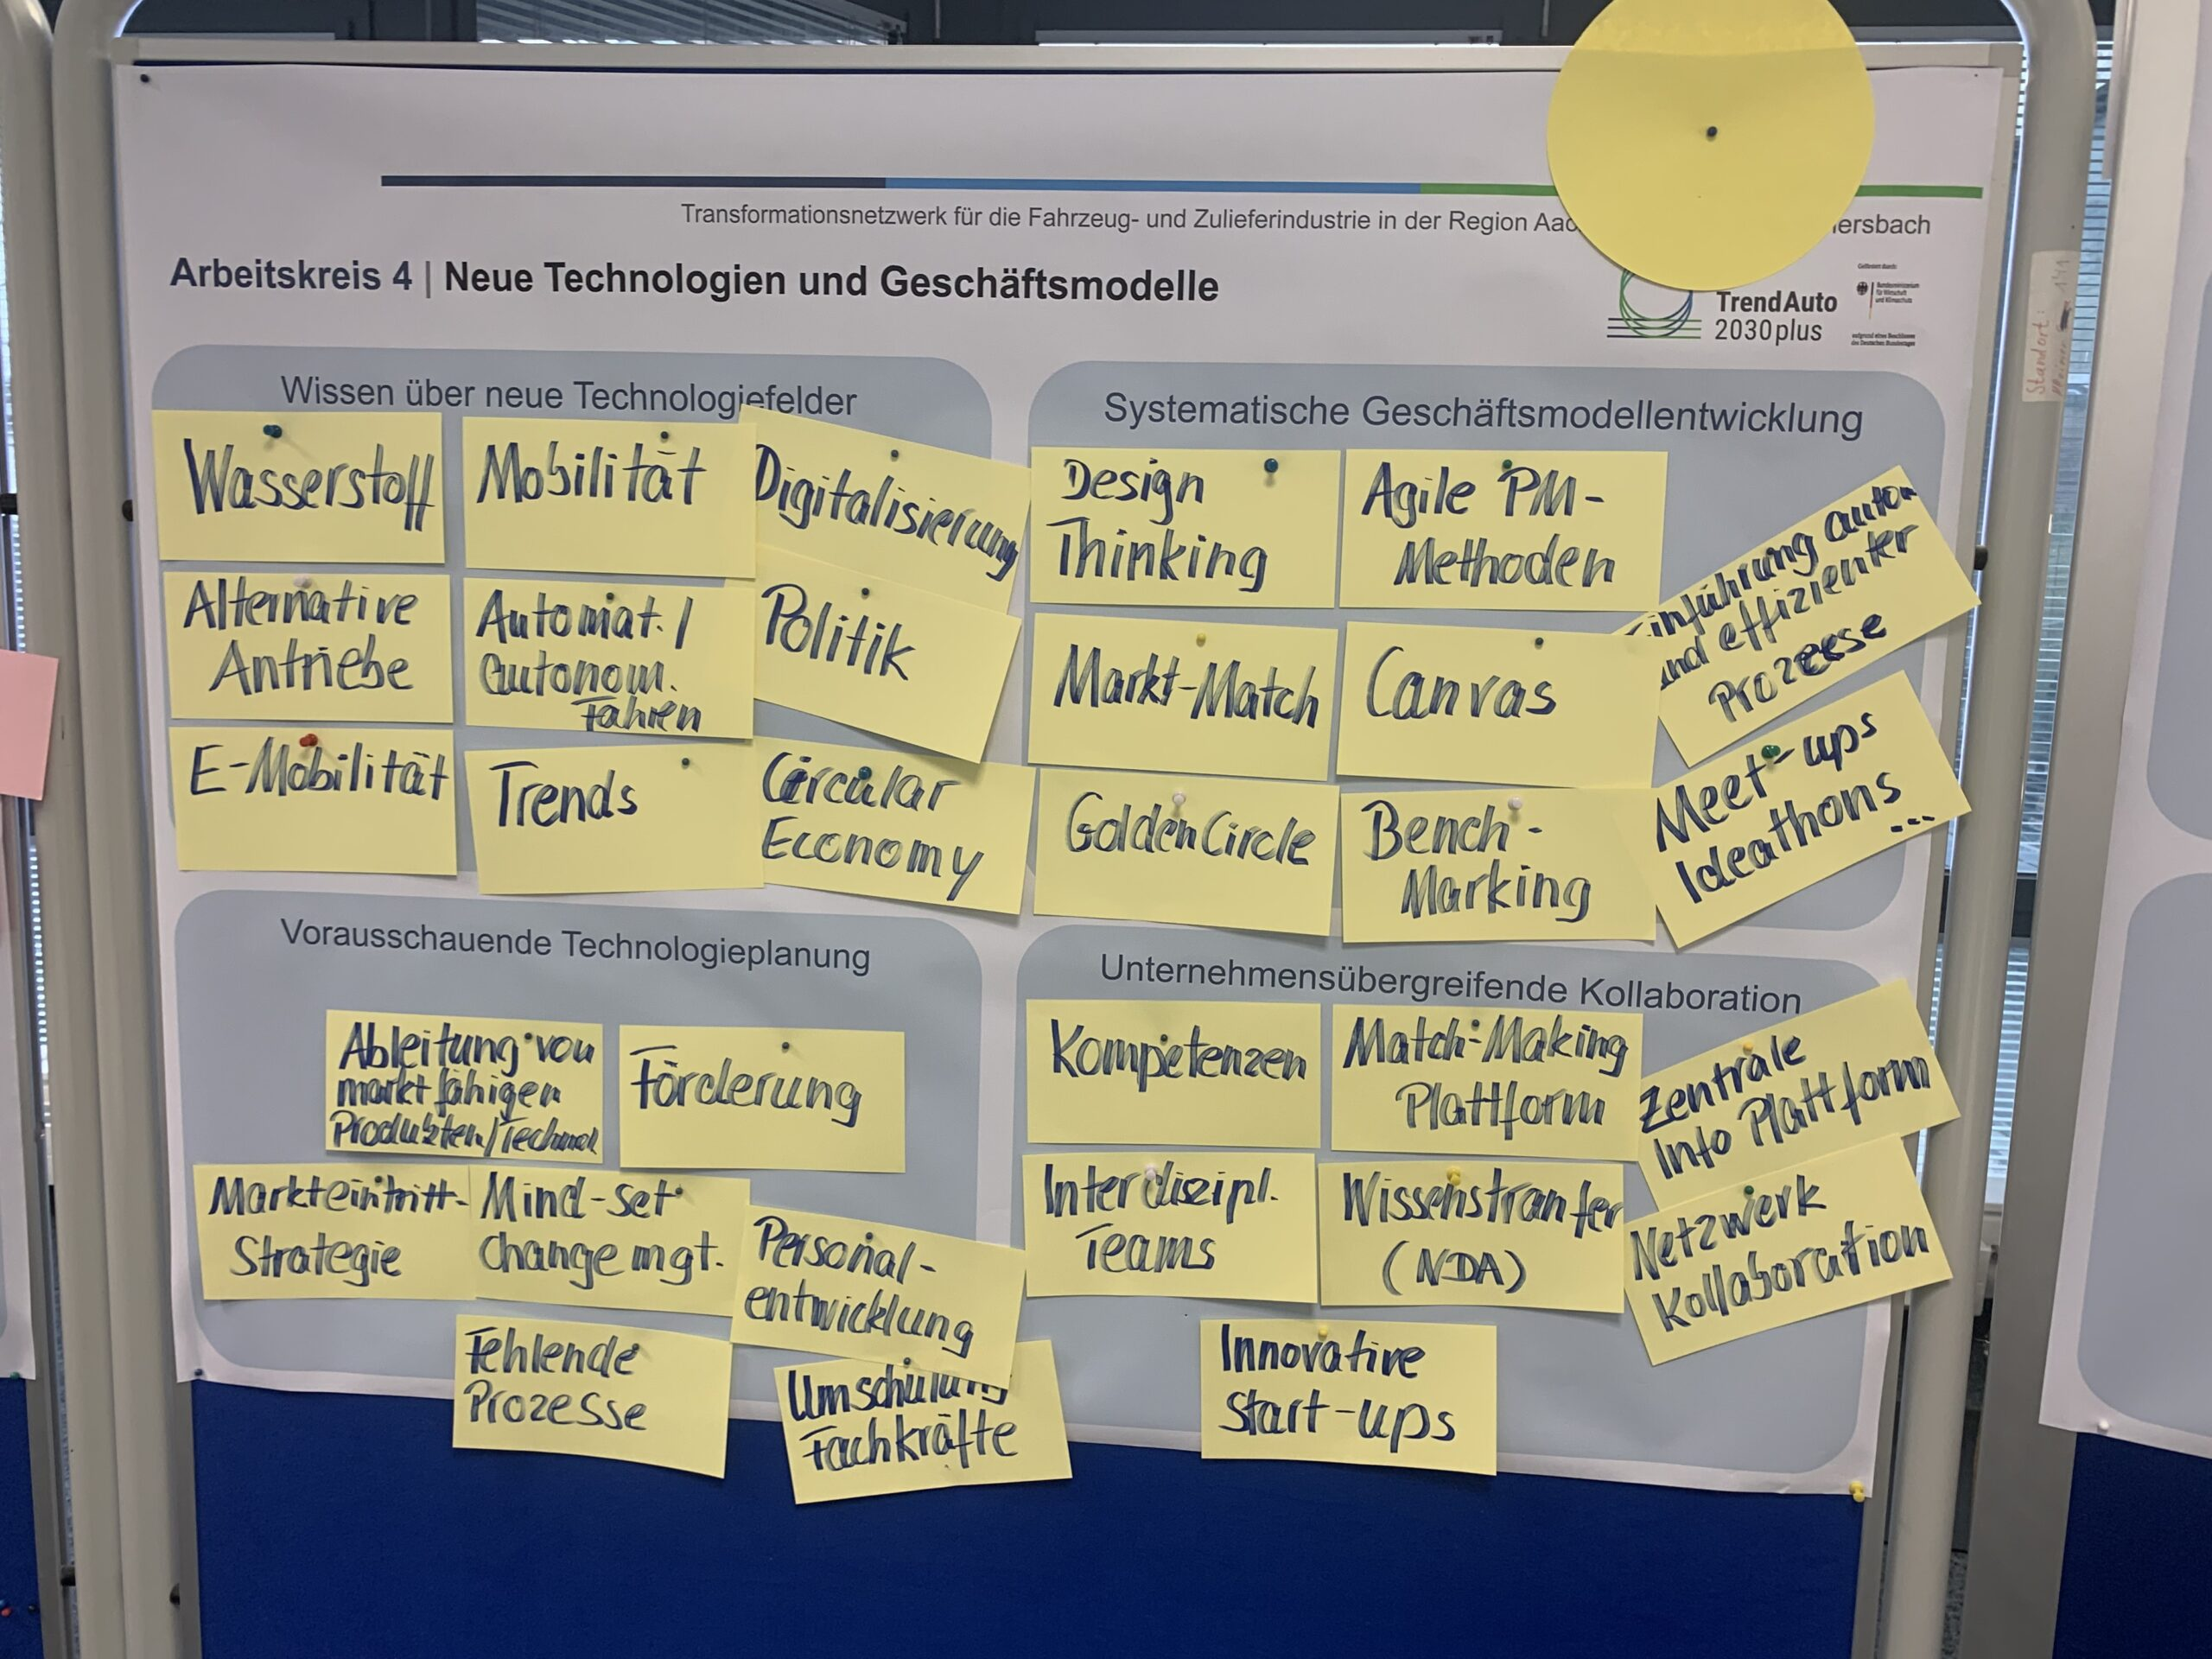 Transformationsnetzwerk für die Fahrzeug- und Zulieferindustrie in der Region
Arbeitskreis 4 | Neue Technologien und Geschäftsmodelle
TrendAuto
2030plus
Wissen über neue Technologiefelder
Wasserstoff
Mobilität
Digitalisierung
Alternative
Antriebe
Automat. /
autonom.
Fahren
Politik
E-Mobilität
Trends
Circular
Economy
Systematische Geschäftsmodellentwicklung
Design
Thinking
Agile PM-
Methoden
und effizienter
Prozesse
Markt-Match
Canvas
Golden Circle
Bench-
Marking
Meet-ups
Ideathons
...
Vorausschauende Technologieplanung
Ableitung von
marktfähigen
Produkten/
Förderung
Markteintritt-
Strategie
Mind-set
change mgt.
Personal-
entwicklung
Fehlende
Prozesse
Umschulung
Fachkräfte
Unternehmensübergreifende Kollaboration
Kompetenzen
Match-Making
Plattform
Zentrale
Info Plattform
Interdiszipl.
Teams
Wissenstranfer
(NDA)
Netzwerk
Kollaboration
Innovative
Start-ups
Standort: